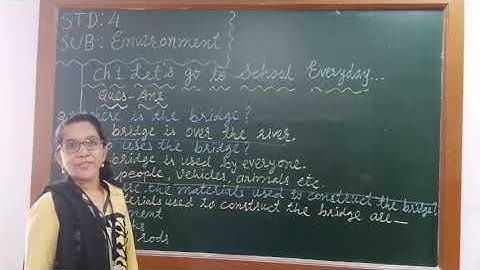 STD: 4
SUB: Environment
Ch 1 Let's go to School Everyday...
Ques-Ans
is the bridge?
bridge is over the river.
uses the bridge?
bridge is used by everyone.
people, vehicles, animals etc.
the materials used to construct the bridge?
materials used to construct the bridge are—
rods